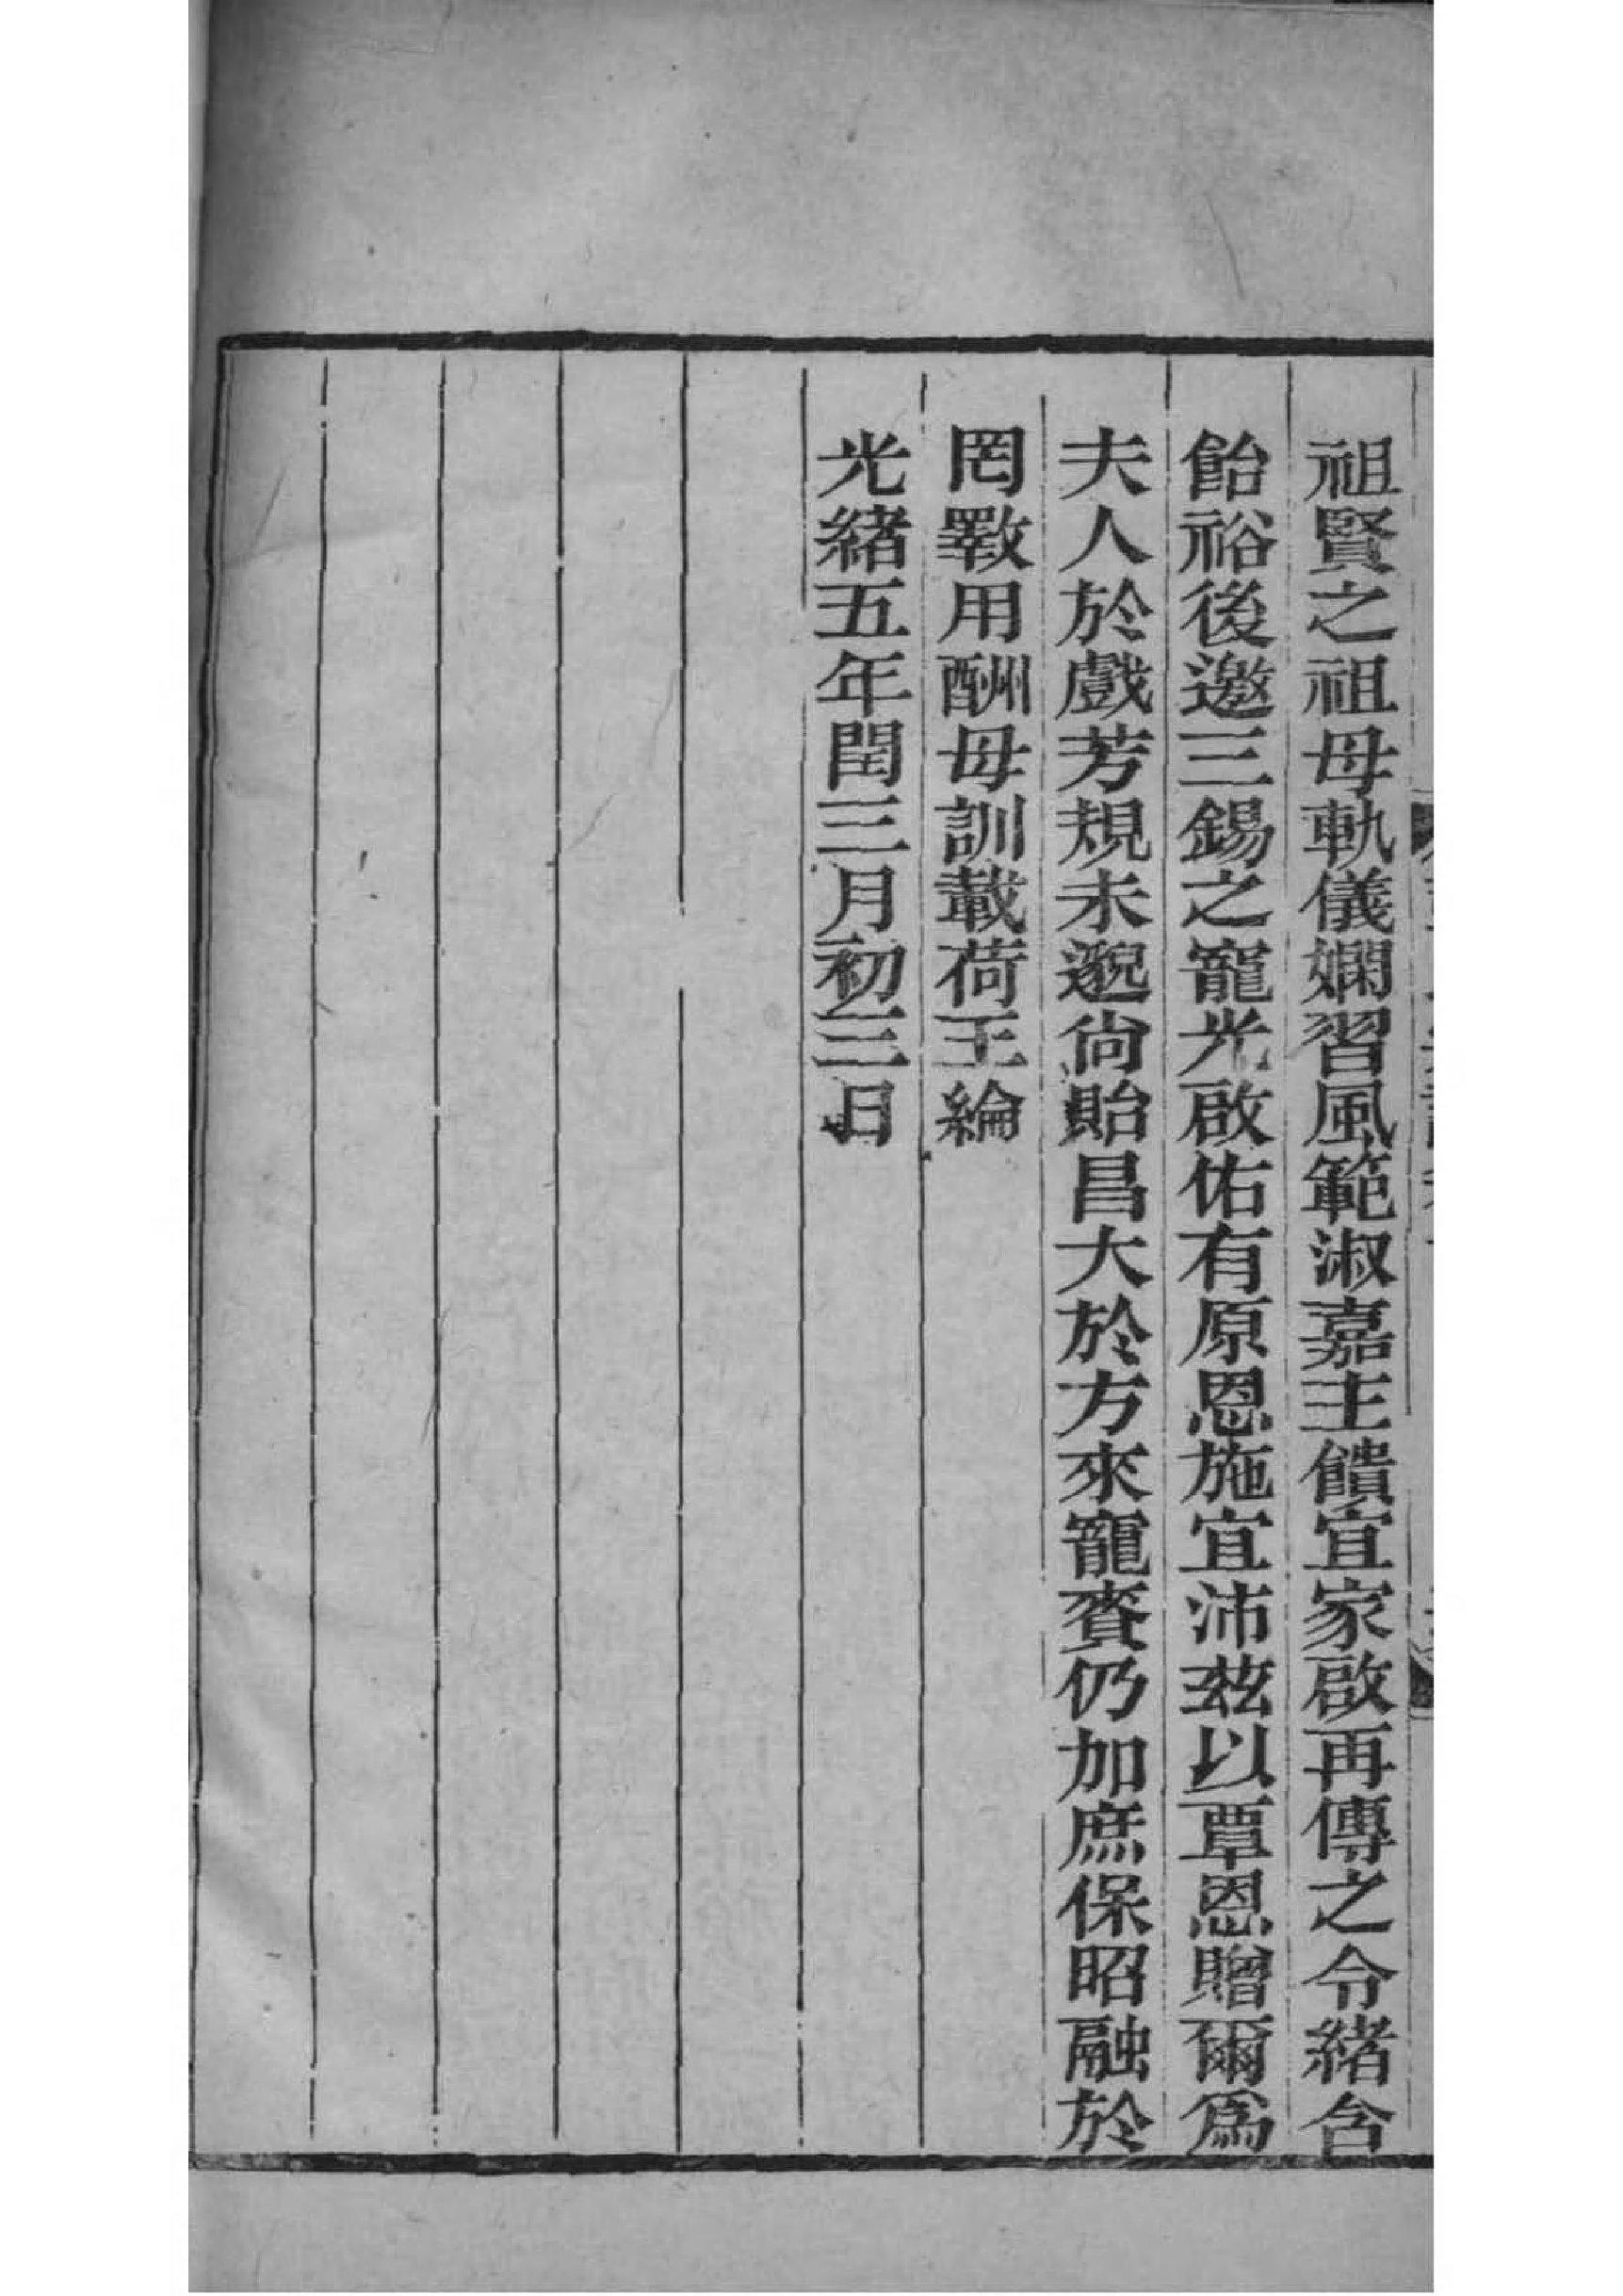 祖賢之祖母軌儀嫻習風範淑嘉主饋宜家啟再傳之令緒含
飴裕後邀三錫之寵光啟佑有原恩施宜沛茲以覃恩贈爾爲
夫人於戲芳規未邈尙貽昌大於方來寵賚仍加庶保昭融於
罔斁用酬母訓載荷王綸
光緒五年閏三月初三日